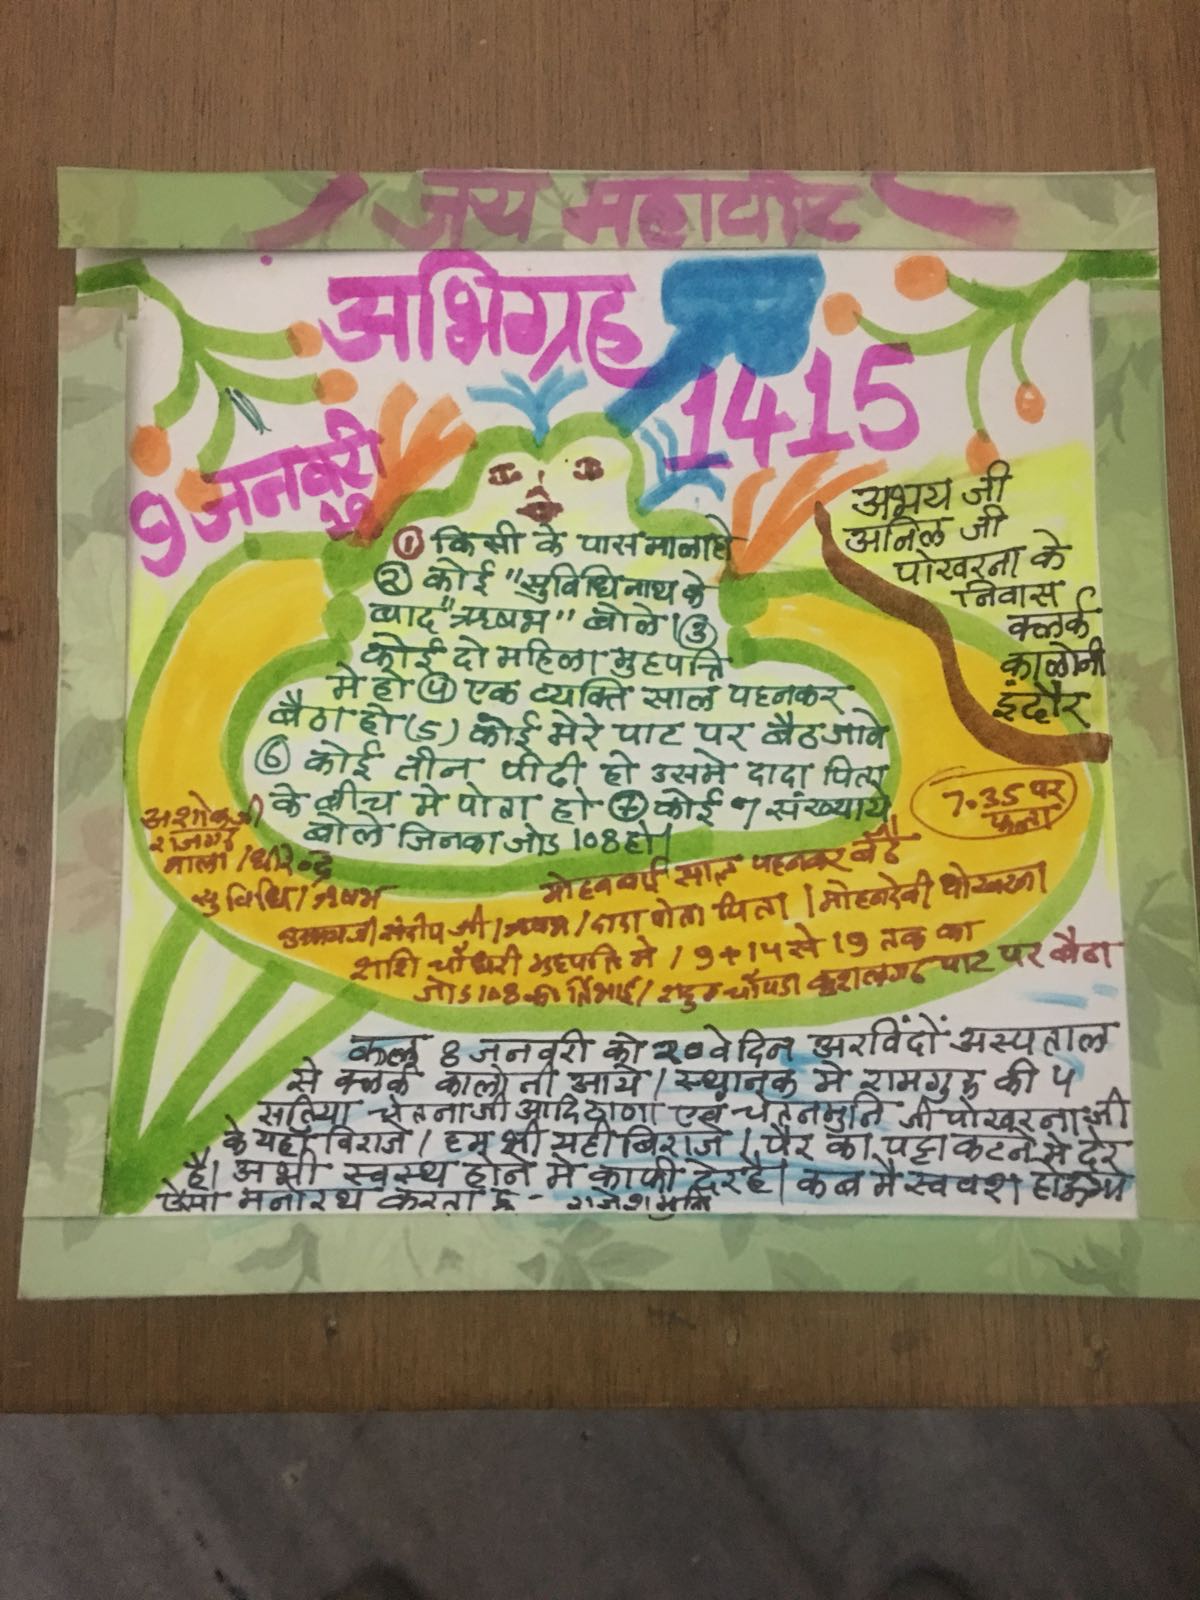 जय महावीर
अभिग्रह
1415
9 जनवरी
अभय जी
अनिल जी
पोखरना के
निवास
क्लर्क
कालोनी
इंदौर
① किसी के पास माला हो
② कोई "सुविधिनाथ के
बाद "ऋषभ" बोले। ③
कोई दो महिला मुहपत्ति
मे हो ④ एक व्यक्ति साल पहनकर
बैठा हो (5) कोई मेरे पाट पर बैठ जावे
⑥ कोई तीन पीढी हो उसमे दादा पिता
के बीच मे पोता हो ⑦ कोई 7 संख्याये
बोले जिनका जोड 108 हो।
7.35 पर
फला
अशोक जी
राजगढ
माला / धीरेन्द्र
सुविधि / ऋषभ
साल पहनकर बैठे
संदीप जी / ऋषभ / दादा पोता पिता / मोहनदेवी पोखरना
शशि चौधरी मुहपत्ति मे / 9 + 14 से 19 तक का
जोड 108 चौपडा कुशलगढ पाट पर बैठा
कल 8 जनवरी को 20 वे दिन अरविंदों अस्पताल
से क्लर्क कालोनी आये / स्थानक मे रामगुरु की 5
सतिया चेतनाजी आदि ठाणा एवं चेतनमुनि जी पोखरना जी
के यहाँ विराजे / हम भी सही बिराजे / पैर का पट्टा कटने मे देर
है। अभी स्वस्थ होने मे काफी देर है। कब मै स्ववश होऊंगा
ऐसा मनोरथ करता हूं - राजेश मुनि